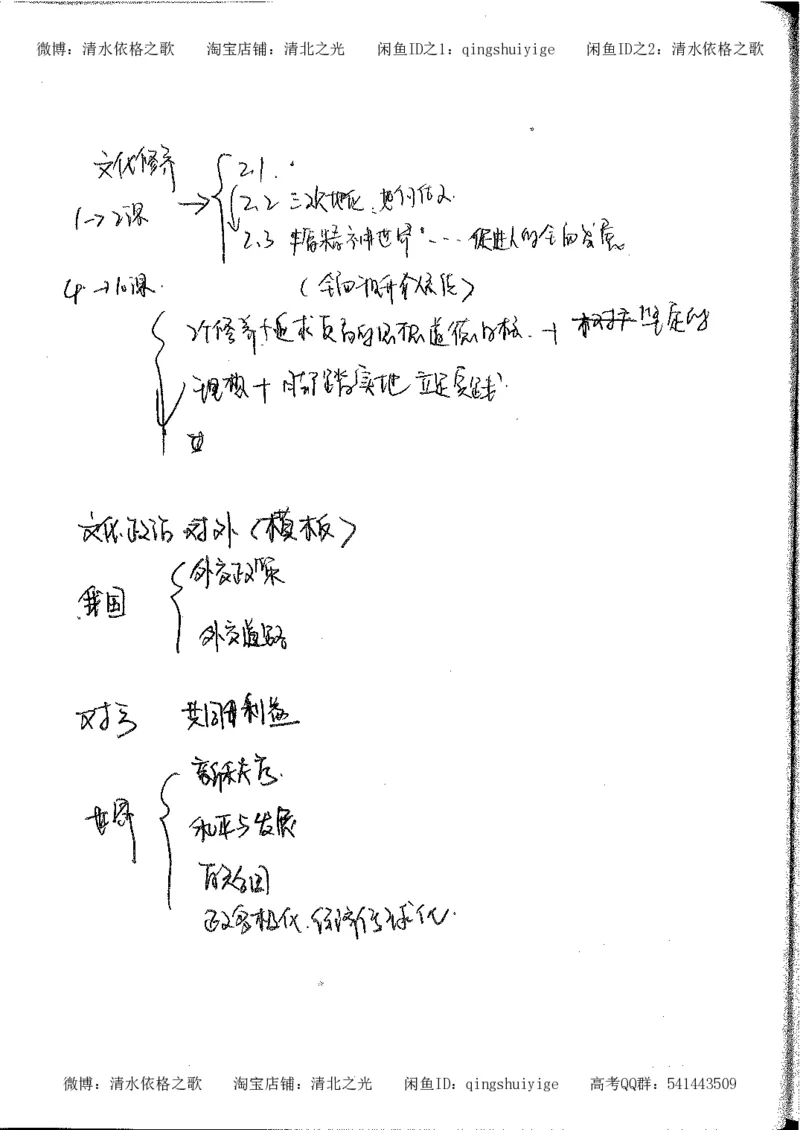 微博：清水依格之歌 淘宝店铺：清北之光 闲鱼ID之1：qingshuiyige 闲鱼ID之2：清水依格之歌
文化修养
1→2课
→ 2.1
2.2 三次
2.3 丰富精神世界 … 促进人的全面发展
4 →10课
(全面提升个人)
修养 + 追求更高的思想道德目标 + 坚定的
理想 + 脚踏实地 立足实践
文化 政治 对外（模板）
我国
外交政策
外交道路
对方 共同利益
世界
新秩序
和平与发展
联合国
政多极化 经济全球化
微博：清水依格之歌 淘宝店铺：清北之光 闲鱼ID：qingshuiyige 高考QQ群：541443509